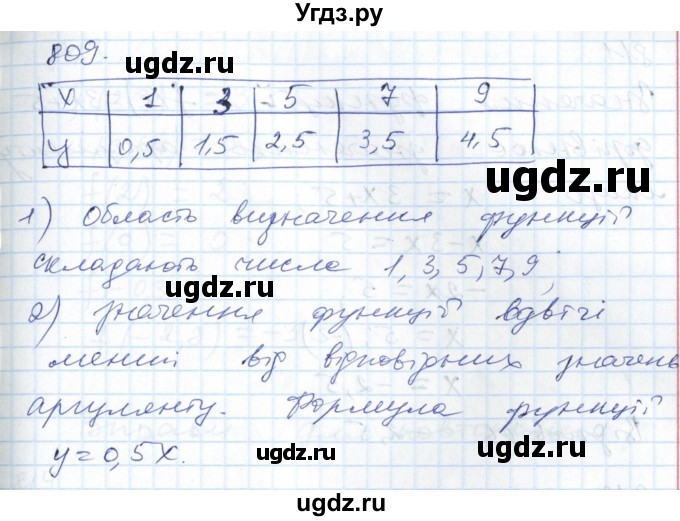 Угдз.ру
809.
x 1 3 5 7 9
y 0,5 1,5 2,5 3,5 4,5
1) Область визначення функції
складають числа 1, 3, 5, 7, 9;
2) значення функції вдвічі
менші від відповідних значень
аргументу. Формула функції
y = 0,5x.
ugdz.ru
ugdz.ru
ugdz.ru
ugdz.ru
ugdz.ru
ugdz.ru
ugdz.ru
ugdz.ru
ugdz.ru